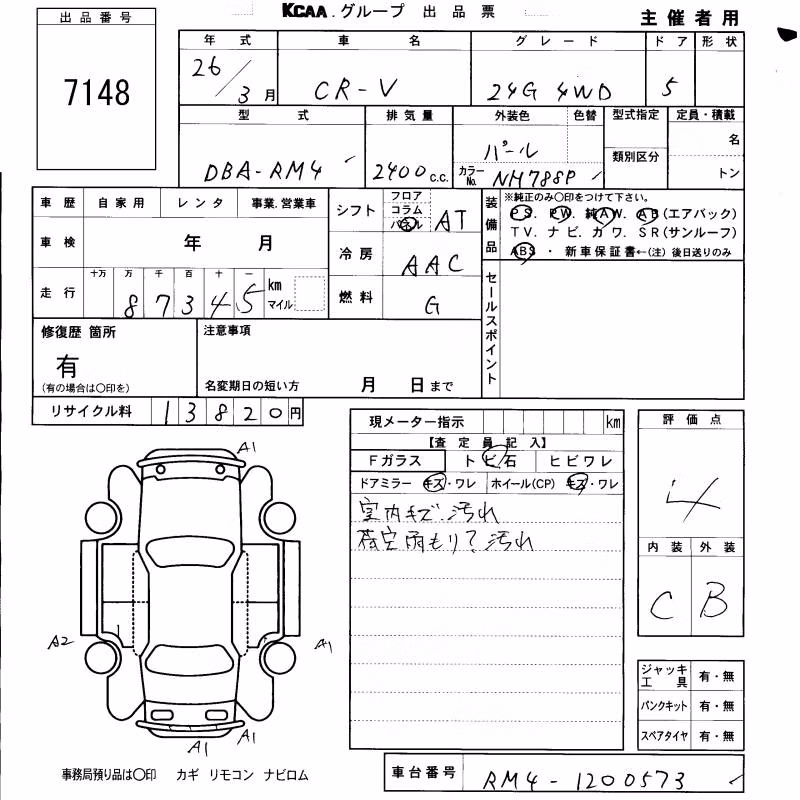 KCAA.グループ 出品票
主催者用
出品番号
7148
年式 車名 グレード ドア 形状
26/3月 CR-V 24G 4WD 5
型式 排気量 外装色 色替 型式指定 定員・積載
DBA-RM4 2400c.c. パール カラーNo. NH788P 類別区分 名 トン
車歴 自家用 レンタ 事業.営業車
車検 年 月
走行 十万 万 千 百 十 一 km マイル
87345
シフト フロア コラム パネル AT
冷房 AAC
燃料 G
装備品 ※純正のみ〇印をつけて下さい。
PS. PW. 純AW. AB(エアバック)
TV. ナビ. カワ. SR(サンルーフ)
ABS ・ 新車保証書←(注)後日送りのみ
セールスポイント
修復歴 箇所
有
(有の場合は〇印を)
注意事項
名変期日の短い方 月 日まで
リサイクル料 13820円
現メーター指示 km
【査定員記入】
Fガラス トビ石 ヒビワレ
ドアミラー キズ・ワレ ホイール(CP) キズ・ワレ
室内キズ.汚れ
荷室雨もり?汚れ
評価点
4
内装 外装
C B
A1
A2
A1
A1
A1
ジャッキ工具 有・無
パンクキット 有・無
スペアタイヤ 有・無
事務局預り品は〇印 カギ リモコン ナビロム
車台番号 RM4-1200573